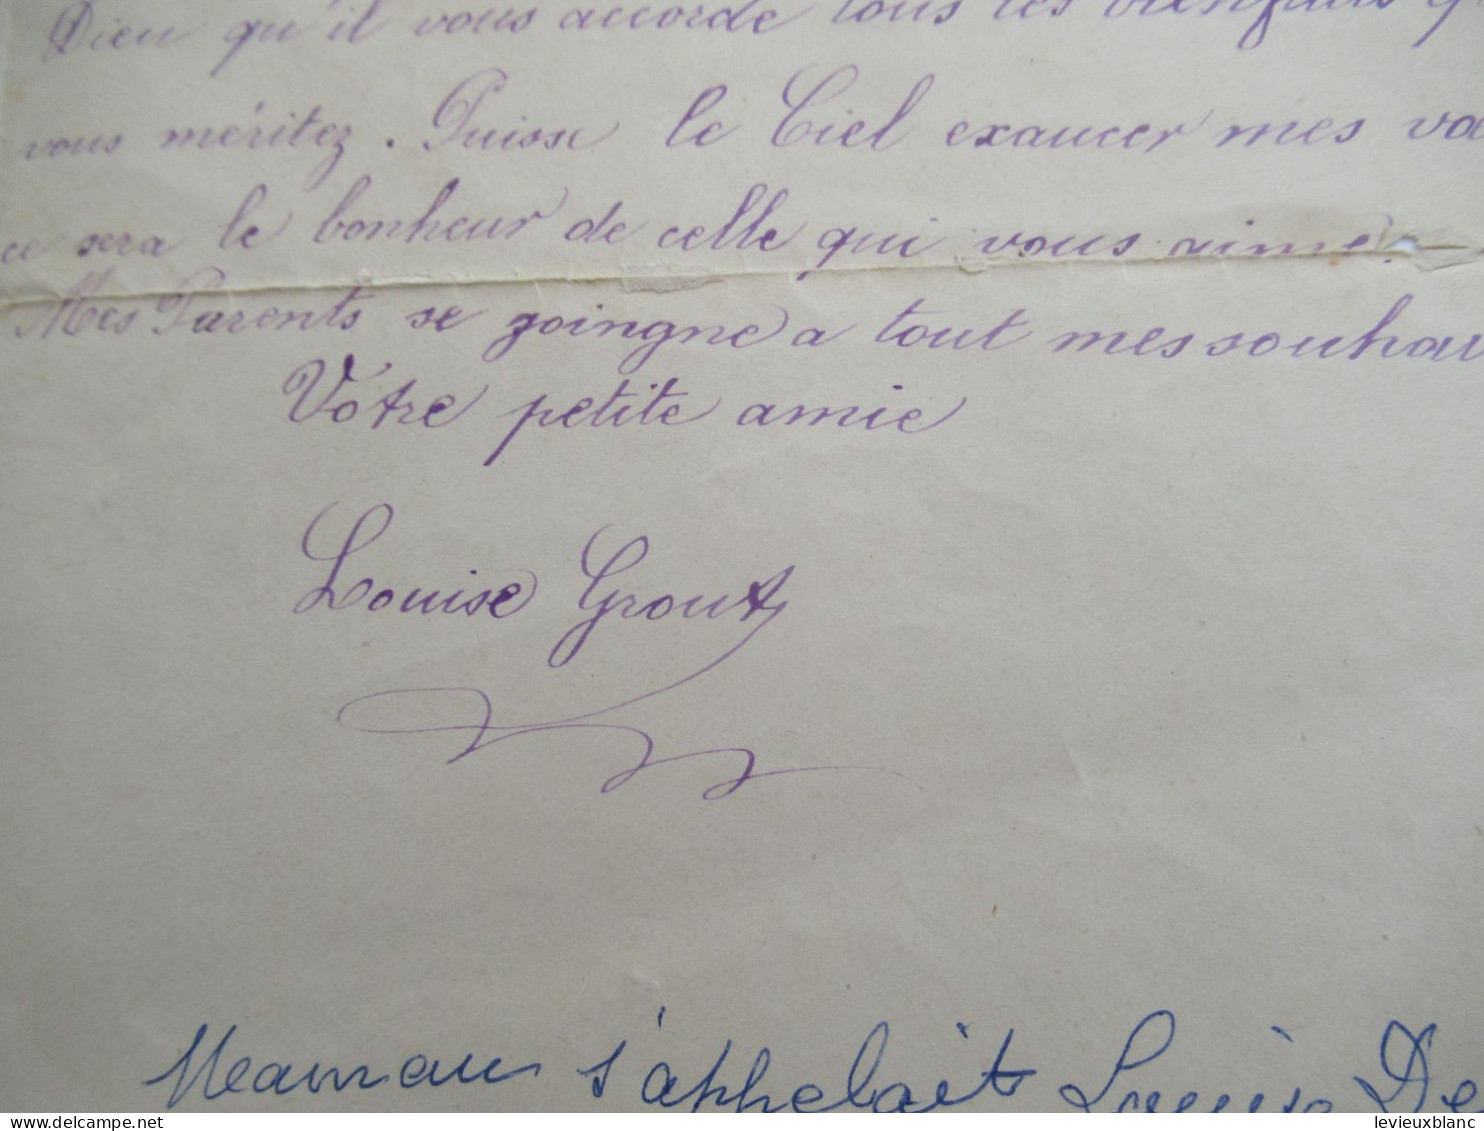 Dieu qu'il vous accorde tous les bienfaits
vous méritez. Puisse le Ciel exaucer mes
ce sera le bonheur de celle qui vous aime.
Mes Parents se joingne a tout mes souhai
Votre petite amie
Louise Grout
Maman s'appelait Louise De
www.delcampe.net
levieuxblanc